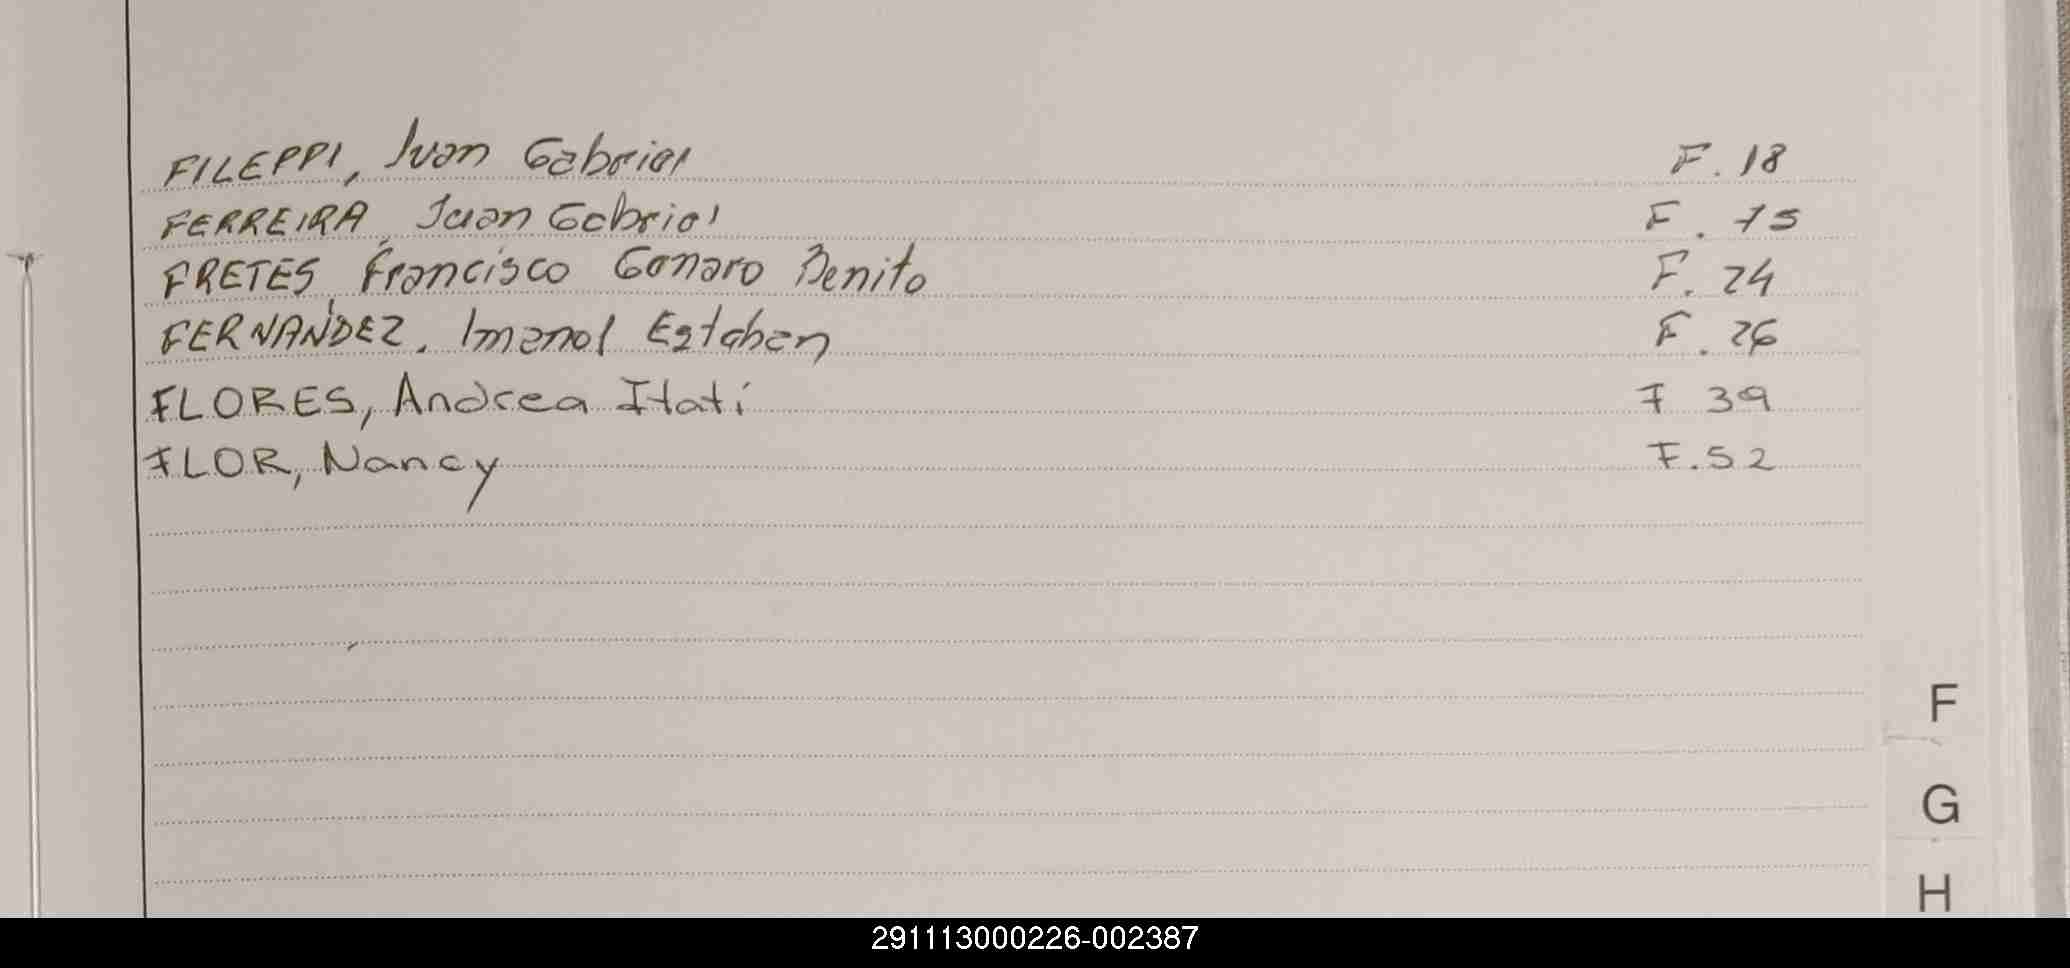 FILEPPI, Ivan Gabriel F. 18
FERREIRA, Juan Gabriel F. 15
FRETES, Francisco Genaro Benito F. 24
FERNANDEZ. Imanol Esteban F. 26
FLORES, Andrea Itatí F 39
FLOR, Nancy F. 52
F
G
H
291113000226-002387